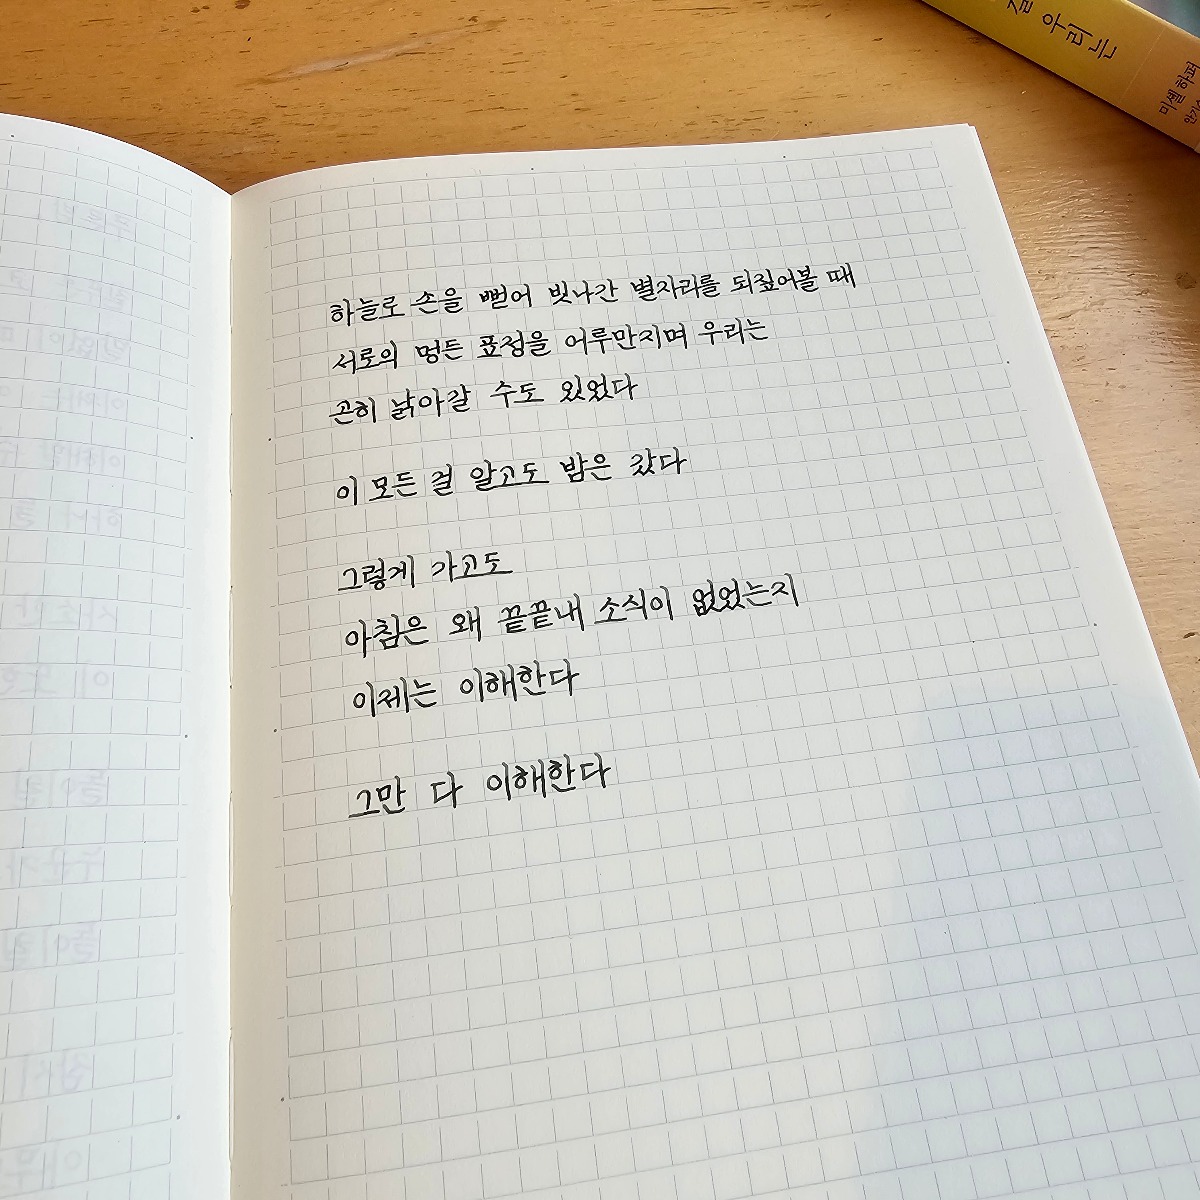 우리는
미셸 하퍼
하늘로 손을 뻗어 빗나간 별자리를 되짚어볼 때
서로의 멍든 표정을 어루만지며 우리는
곤히 낡아갈 수도 있었다
이 모든 걸 알고도 밤은 갔다
그렇게 가고도
아침은 왜 끝끝내 소식이 없었는지
이제는 이해한다
그만 다 이해한다